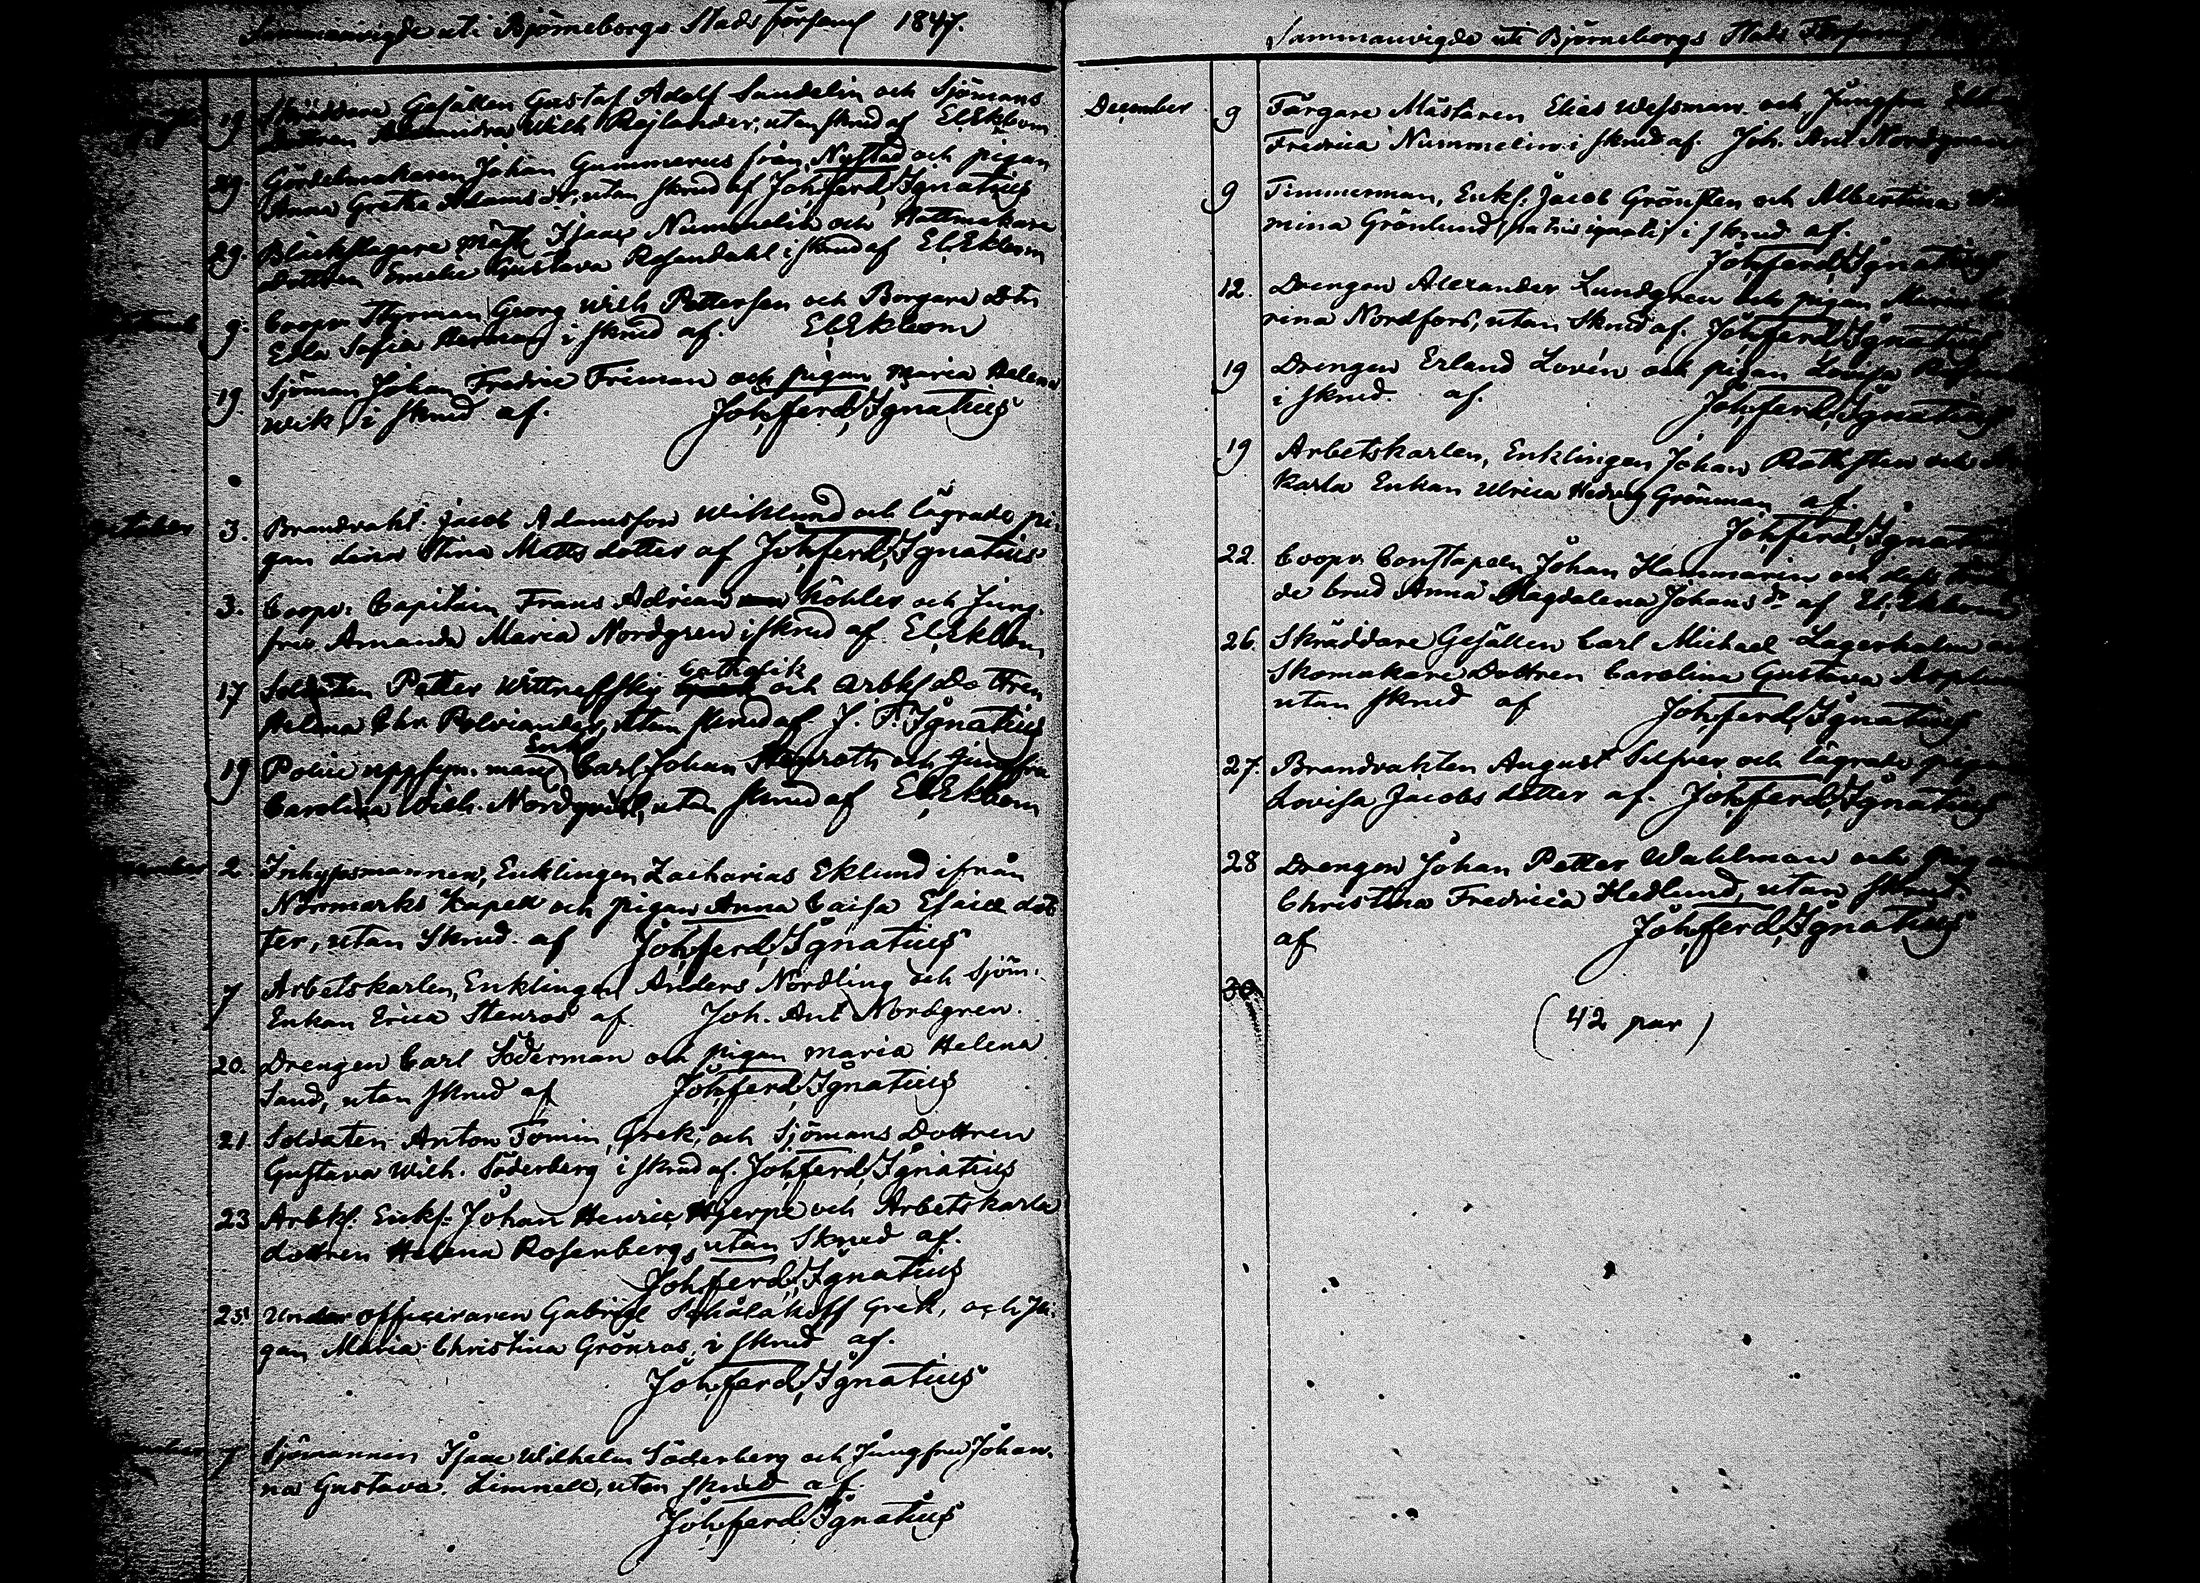 Sammanvigde uti Björneborgs Stads församl 1847.
19 Skräddare Gesällen Gustaf Adolf Sandelin och Sjömans
Dottren Alexandra Wilh Rajlander, utan skrud af El. Ekbom
29. Gördelmakaren Johan Gummerus från Nystad och pigan
Anna Greta Adams dr, utan skrud af Joh. Ferd. Ignatius
29. Bläckslagare mäst. Isaac Nummelin och Hattmakare
Dottren Emelie Gustava Rosendahl i skrud af El. Ekbom
9. Coopv. Styrman Georg Wilh Pettersen och Borgare Dotr
Edla Sofia Herman i skrud af. El. Ekbom
19 Sjöman Johan Fredric Friman och pigan Maria Helena
Wik, i skrud af. Joh. Ferd. Ignatius
October 3. Brandvakt. Jacob Adamsson Wiklund och lägrade pi-
gan Lena Stina Matts dotter af Joh. Ferd. Ignatius
3. Coopv: Capitain Frans Adrian Köhler och Jung-
fru Amanda Maria Nordgren i skrud af El. Ekbom
Catholik
17 Soldaten Petter Wittneffsky och Arbks Dottren
Helena Chr. utan skrud af J. F. Ignatius
Enkl
19 Police uppsyn. man Carl Johan Stenroth och Jungfru
Carolina Wilh. Nordqvist, utan skrud af El. Ekbom
2 Inhysesmannen, Enklingen Zacharias Eklund ifrån
Norrmarks Kapell och pigan Anna Caisa Esaiæ dot
ter, utan skrud. af Joh. Ferd. Ignatius
7 Arbetskarlen, Enklingen Anders Nordling och Sjöm.
Enkan Erica Stenros af. Joh. Ant. Nordgren.
20. Drengen Carl Söderman och pigan Maria Helena
Sand, utan skrud af Joh. Ferd. Ignatius
21. Soldaten Anton Fomin, Grek, och Sjömans Dottren
Gustava Wilh. Söderberg i skrud af. Joh. Ferd. Ignatius
23 Arbk. Enkl: Johan Henric Hjerpe och Arbetskarla
dottren Helena Rosenberg, utan skrud af.
Joh. Ferd. Ignatius
25. Under officeraren Gabriel Grek, och Pi-
gan Maria Christina Grönros, i skrud af.
Joh. Ferd. Ignatius
7 Sjömannen Isaac Wilhelm Söderberg och Jungfru Johan-
na Gustava Limnell, utan skrud af.
Joh. Ferd. Ignatius
Sammanvigde uti Björneborgs Stads Församl
December 9 Färgare Mästaren Elias Wessman och Jungfru
Fredrica Nummelin i skrud af. Joh. Ant. Nordgren
9 Timmerman, Enkl: Jacob Grönsten och Albertina
mina Grönlund i skrud af.
Joh. Ferd. Ignatius
12. Drengen Alexander Lundgren och pigan Maria
rina Nordfors, utan skrud af. Joh. Ferd. Ignatius
19 Drengen Erland Lovén och pigan Lovisa
i skrud. af. Joh. Ferd. Ignatius
19 Arbetskarlen, Enklingen Johan Rothsten och
karla Enkan Ulrica Hedvig Grönman af.
Joh. Ferd. Ignatius
22. Coopv. Constapeln Johan Hammarin och dess
de brud Anna Magdalena Johans dr af El. Ekbom
26. Skräddare Gesällen Carl Michael Lagerholm
Skomakare Dottren Carolina Gustava Asplund
utan skrud af Joh. Ferd. Ignatius
27. Brandvakten August Silfver och lägrade pigan
Lovisa Jacobs dotter af. Joh. Ferd. Ignatius
28 Drengen Johan Petter Wahlman och pigan
Christina Fredrica Hedlund, utan skrud.
af Joh. Ferd. Ignatius
30.
(42 par)